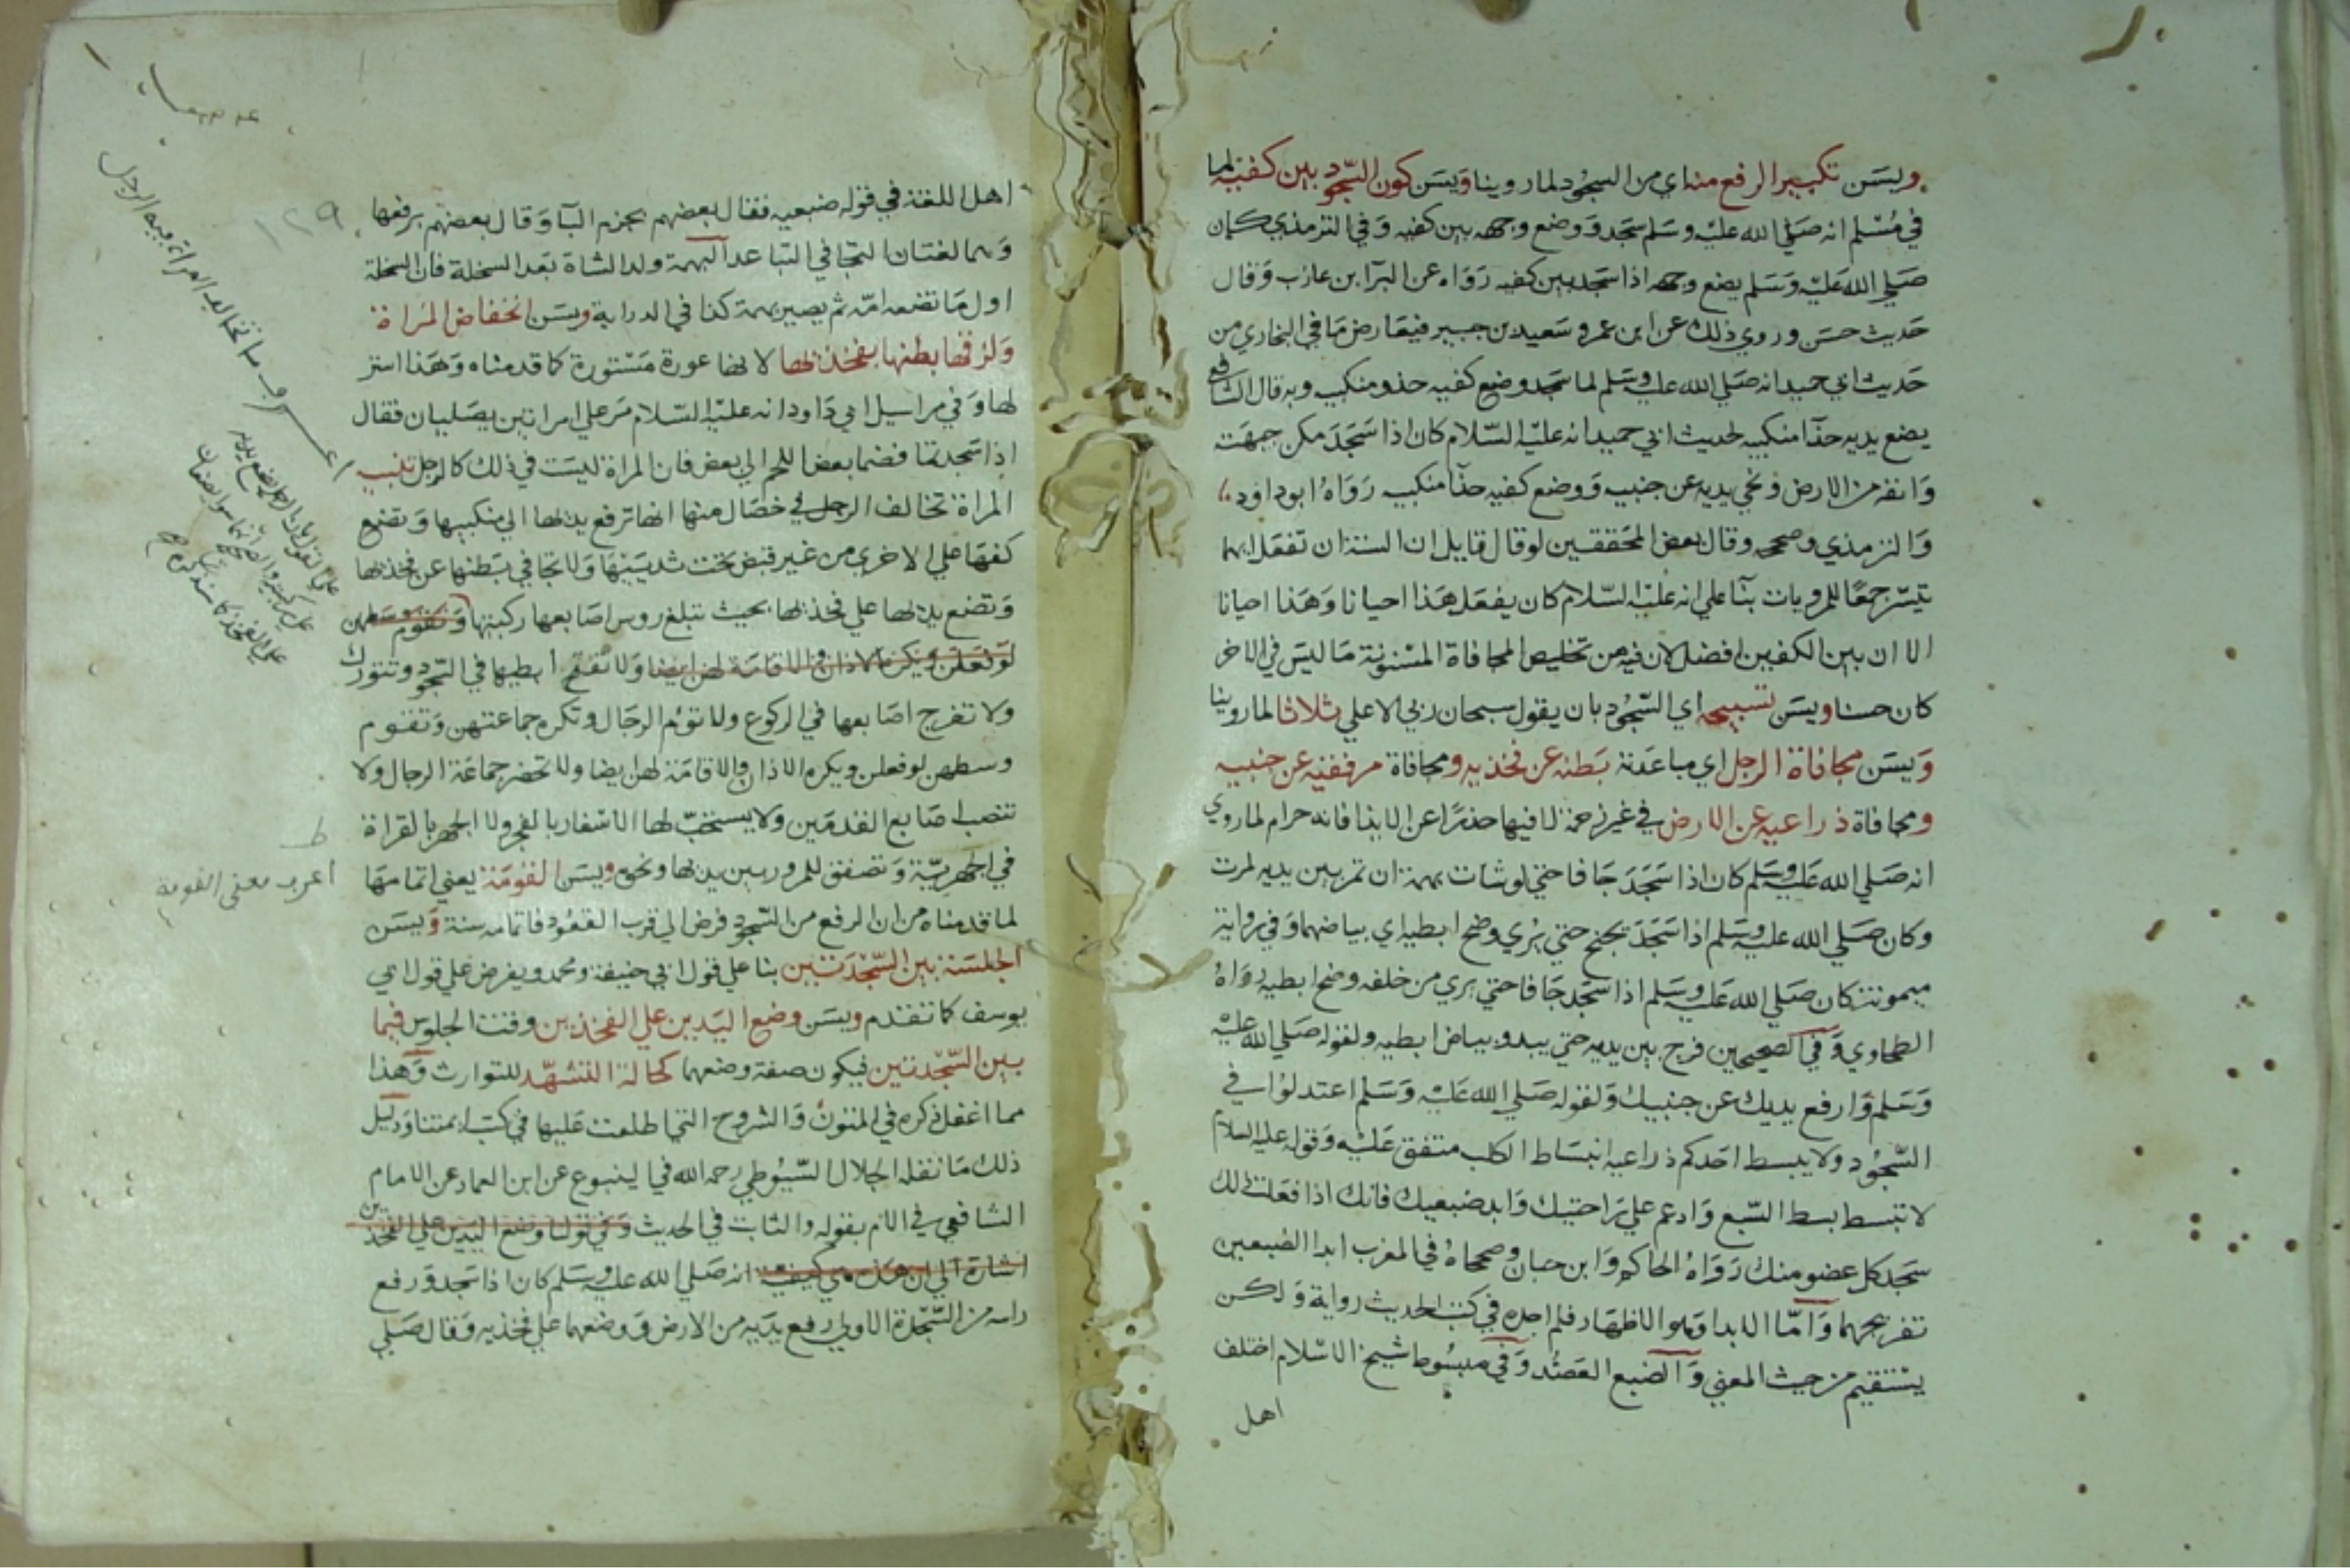 ويسن تكبير الرفع منه اي من السجود لما روينا ويسن كون السجود بين كفيه لما
في مسلم انه صلي الله عليه وسلم سجد ووضع وجهه بين كفيه وفي الترمذي كان
صلي الله عليه وسلم يضع وجهه اذا سجد بين كفيه رواه عن البرا ابن عازب وقال
حديث حسن وروي ذلك عن ابن عمرو سعيد بن جبير فيعارض ما في البخاري من
حديث ابي حميد انه صلي الله عليه وسلم لما سجد وضع كفيه حذو منكبيه وبه قال الشافعي
يضع يديه حذآ منكبيه لحديث ابي حميد انه عليه السلام كان اذا سجد مكن جبهته
وانفه من الارض ونحي يديه عن جنبيه ووضع كفيه حذآ منكبيه رواه ابو داود
والترمذي وصححه وقال بعض المحققين لو قال قايل ان السنة ان تفعل ايهما
تيسر جمعا للمرويات بنآ علي انه عليه السلام كان يفعل هذا احيانا وهذا احيانا
الا ان بين الكفين افضل لان فيه من تخليص المجافاة المسنونة ما ليس في الاخر
كان حسنا ويسن تسبيحه اي السجود بان يقول سبحان ربي الاعلي ثلاثا لما روينا
ويسن مجافاة الرجل اي مباعدته بطنه عن فخذيه ومجافاة مرفقيه عن جنبيه
ومجافاة ذراعيه عن الارض في غير زحمة لا فيها حذرا عن الايذا فانه حرام لما روي
انه صلي الله عليه وسلم كان اذا سجد جافا حتي لو شات بهمة ان تمر بين يديه لمرت
وكان صلي الله عليه وسلم اذا سجد يجنح حتي يري وضح ابطيه اي بياضهما وفي رواية
ميمونة كان صلي الله عليه وسلم اذا سجد جافا حتي يري من خلفه وضح ابطيه رواه
الطحاوي وفي الصحيحين فرج بين يديه حتي يبدو بياض ابطيه ولقوله صلي الله عليه
وسلم وارفع يديك عن جنبيك ولقوله صلي الله عليه وسلم اعتدلوا في
السجود ولا يبسط احدكم ذراعيه انبساط الكلب متفق عليه وقوله عليه السلام
لا تبسط بسط السبع وادعم علي راحتيك وابد ضبعيك فانك اذا فعلت ذلك
سجد كل عضو منك رواه الحاكم وابن حبان وصححاه في المغرب ابدا الضبعين
تفريجهما واما الابدا وهو الاظهار فلم اجده في كتب الحديث رواية ولكن
يستقيم من حيث المعني والضبع العضد وفي مبسوط شيخ الاسلام اختلف
اهل
١٢٩
اهل اللغة في قوله ضبعيه فقال بعضهم بجزم البآ وقال بعضهم برفعها
وهما لغتان التجافي التباعد البهمة ولد الشاة بعد السخلة فان السخلة
اول ما تضعه امه ثم يصير بهمة كذا في الدراية ويسن انخفاض المراة
ولزقها بطنها بفخذيها لانها عورة مستورة كما قدمناه وهذا استر
لها وفي مراسيل ابي داود انه عليه السلام مر علي امراتين يصليان فقال
اذا سجدتما فضما بعض اللحم الي بعض فان المراة ليست في ذلك كالرجل تنبيه
المراة تخالف الرجل في خصال منها انها ترفع يديها الي منكبيها وتضع
كفها علي الاخري من غير قبض تحت ثدييها ولا تجافي بطنها عن فخذيها
وتضع يديها علي فخذيها بحيث تبلغ روس اصابعها ركبتها وتقوم وسطهن
لو فعلن ويكره الاذان والاقامة لهن ايضا ولا تفتح ابطيها في السجود وتتورك
ولا تفرج اصابعها في الركوع ولا تؤم الرجال وتكره جماعتهن وتقوم
وسطهن لو فعلن ويكره الاذان والاقامة لهن ايضا ولا تحضر جماعة الرجال ولا
تنصب اصابع القدمين ولا يستحب لها الاسفار بالفجر ولا الجهر بالقراة
في الجهرية وتصفق للمرور بين يديها ونحوه ويسن القومة يعني اتمامها
لما قدمناه من ان الرفع من السجود فرض الي قرب القعود فاتمامه سنة ويسن
الجلسة بين السجدتين بنا علي قول ابي حنيفة ومحمد ويفرض علي قول ابي
يوسف كما تقدم ويسن وضع اليدين علي الفخذين وقت الجلوس فيما
بين السجدتين فيكون صفة وضعهما كحالة التشهد للتوارث وهذا
مما اغفل ذكره في المتون والشروح التي اطلعت عليها في كتب ايمتنا ودليل
ذلك ما نقله الجلال السيوطي رحمه الله في الينبوع عن ابن العماد عن الامام
الشافعي في الام بقوله والثابت في الحديث وفي قولنا وضع اليدين علي الفخذين
اشارة الي ان هذه هي كيفية انه صلي الله عليه وسلم كان اذا سجد ورفع
راسه من السجدة الاولي رفع يديه من الارض ووضعهما علي فخذيه وقال صلي
اعرف ما تخالف المراة فيه الرجل
اعرف معني القومة